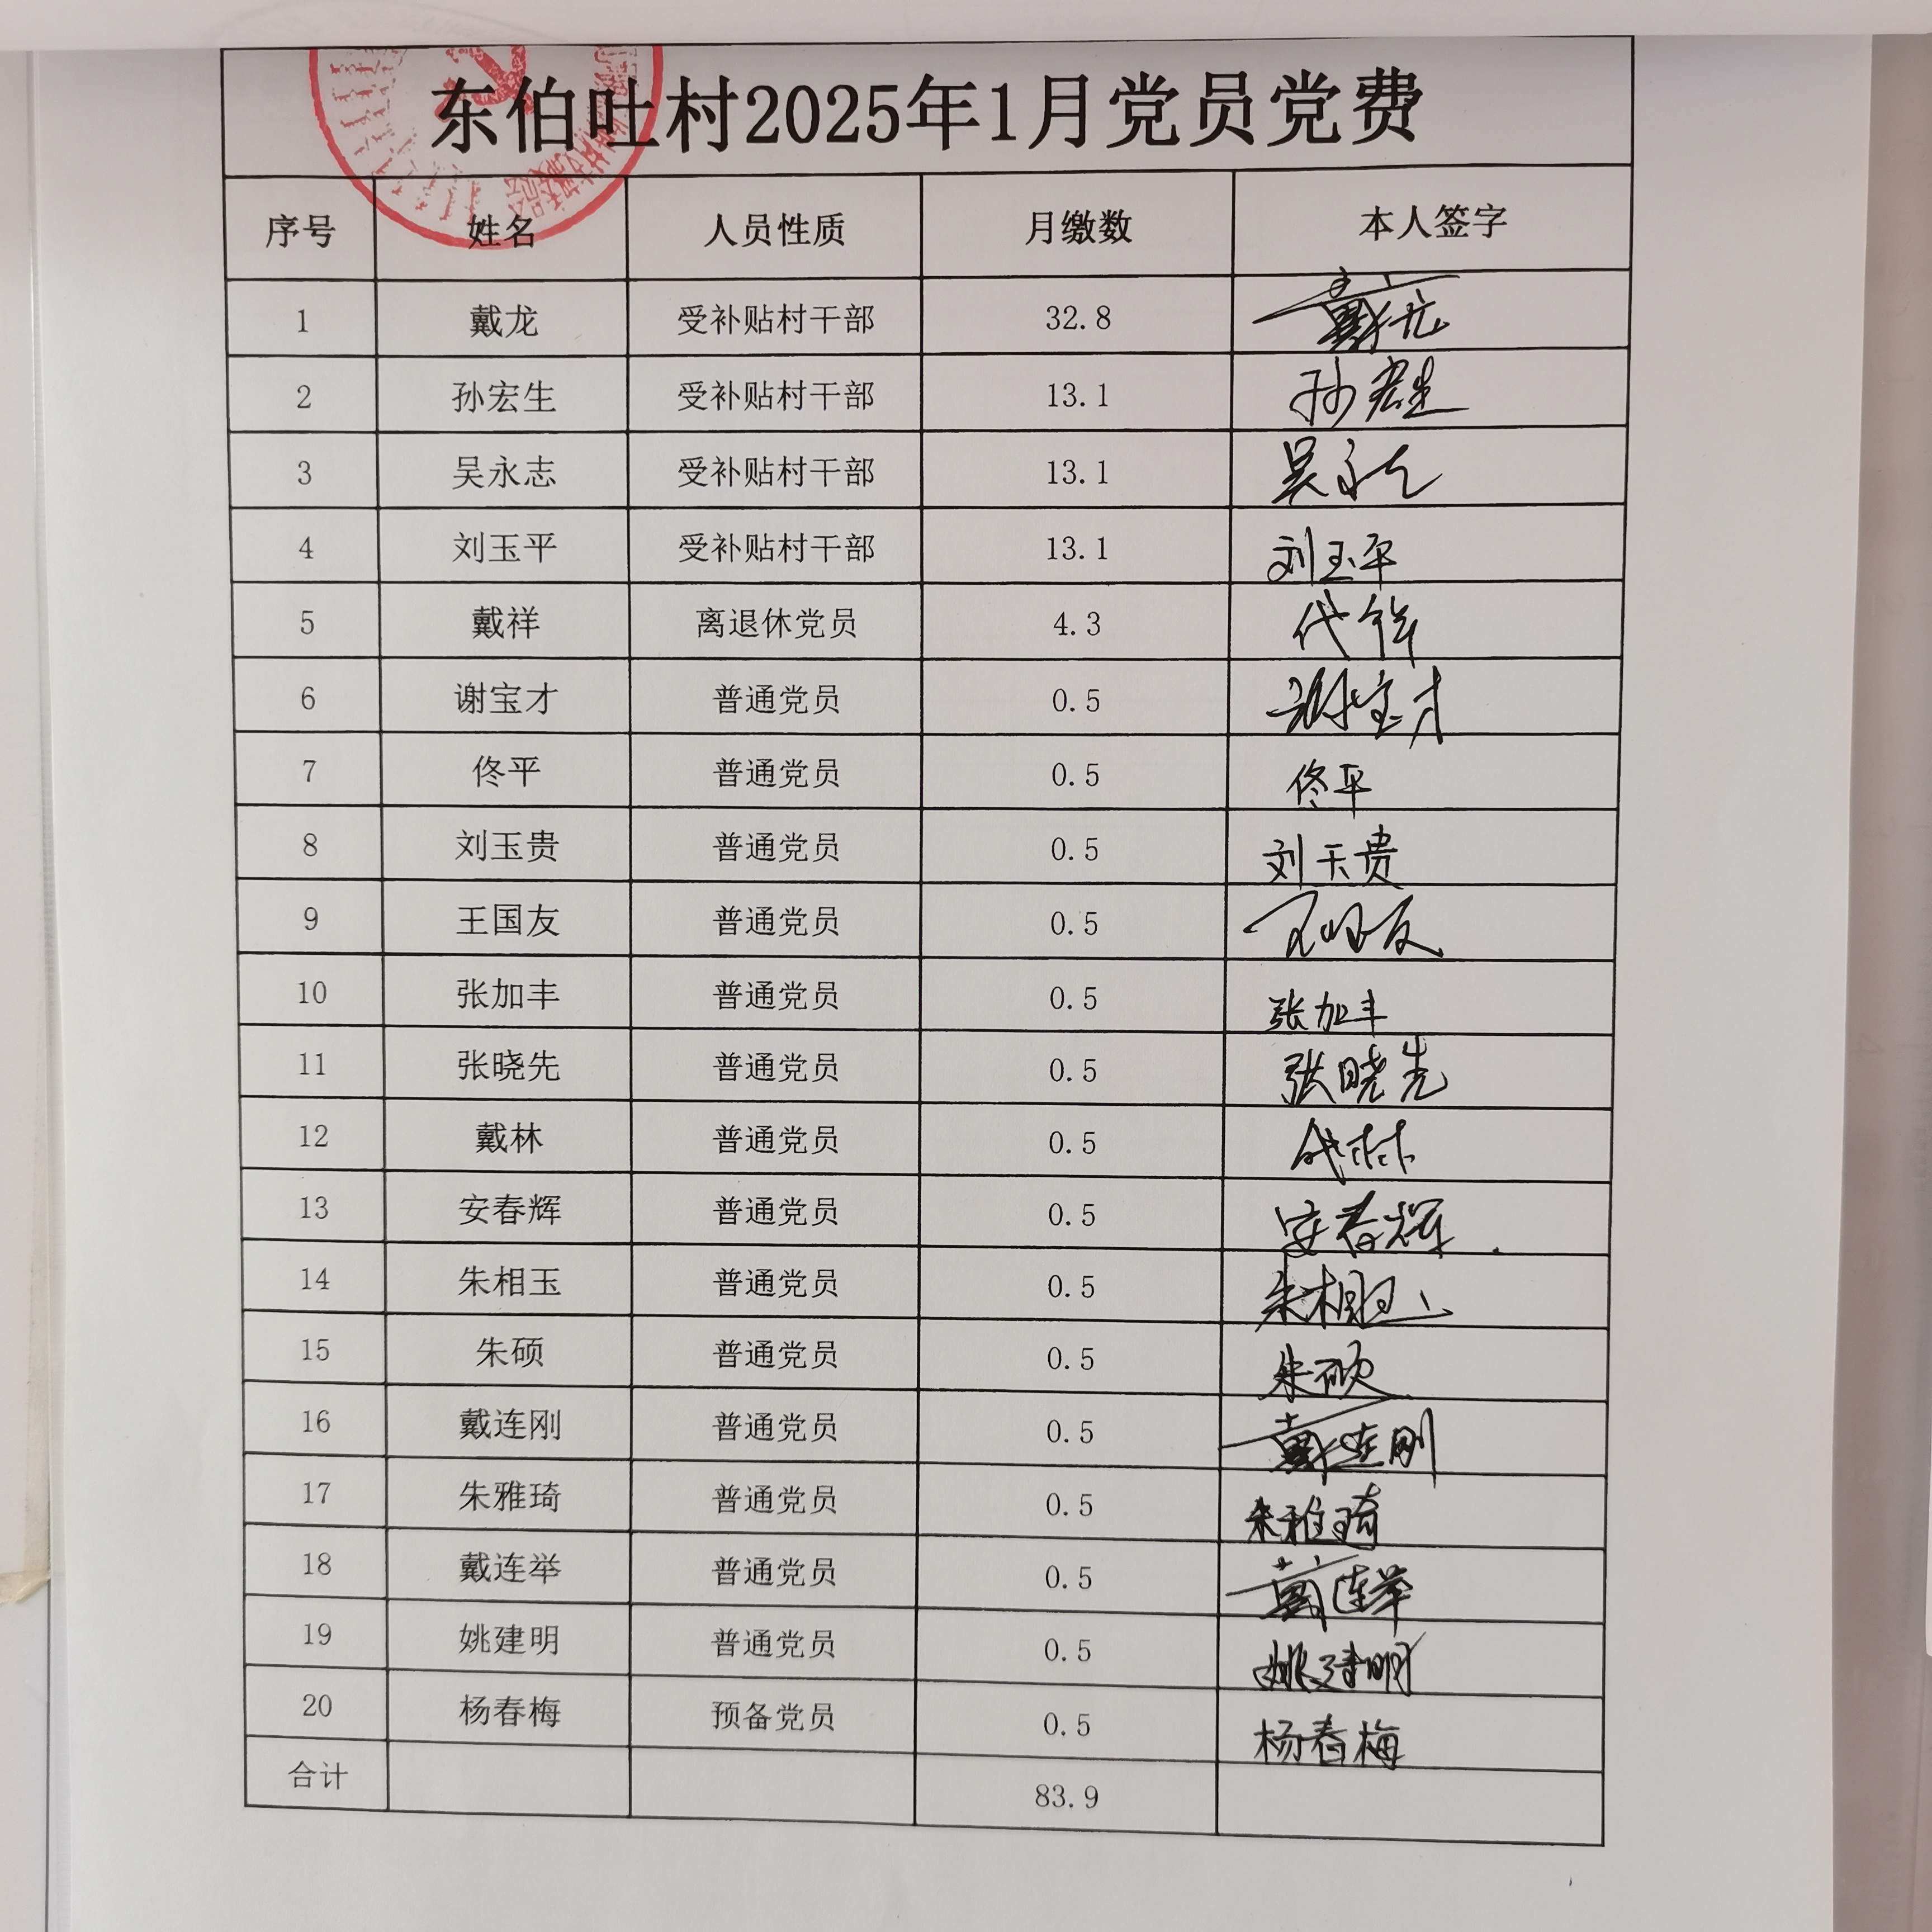 东伯吐村2025年1月党员党费
序号 姓名 人员性质 月缴数 本人签字
1 戴龙 受补贴村干部 32.8 戴龙
2 孙宏生 受补贴村干部 13.1 孙宏生
3 吴永志 受补贴村干部 13.1 吴永志
4 刘玉平 受补贴村干部 13.1 刘玉平
5 戴祥 离退休党员 4.3 代祥
6 谢宝才 普通党员 0.5 谢宝才
7 佟平 普通党员 0.5 佟平
8 刘玉贵 普通党员 0.5 刘玉贵
9 王国友 普通党员 0.5 王国友
10 张加丰 普通党员 0.5 张加丰
11 张晓先 普通党员 0.5 张晓先
12 戴林 普通党员 0.5 代林
13 安春辉 普通党员 0.5 安春辉
14 朱相玉 普通党员 0.5 朱相玉
15 朱硕 普通党员 0.5 朱硕
16 戴连刚 普通党员 0.5 戴连刚
17 朱雅琦 普通党员 0.5 朱雅琦
18 戴连举 普通党员 0.5 戴连举
19 姚建明 普通党员 0.5 姚建明
20 杨春梅 预备党员 0.5 杨春梅
合计 83.9